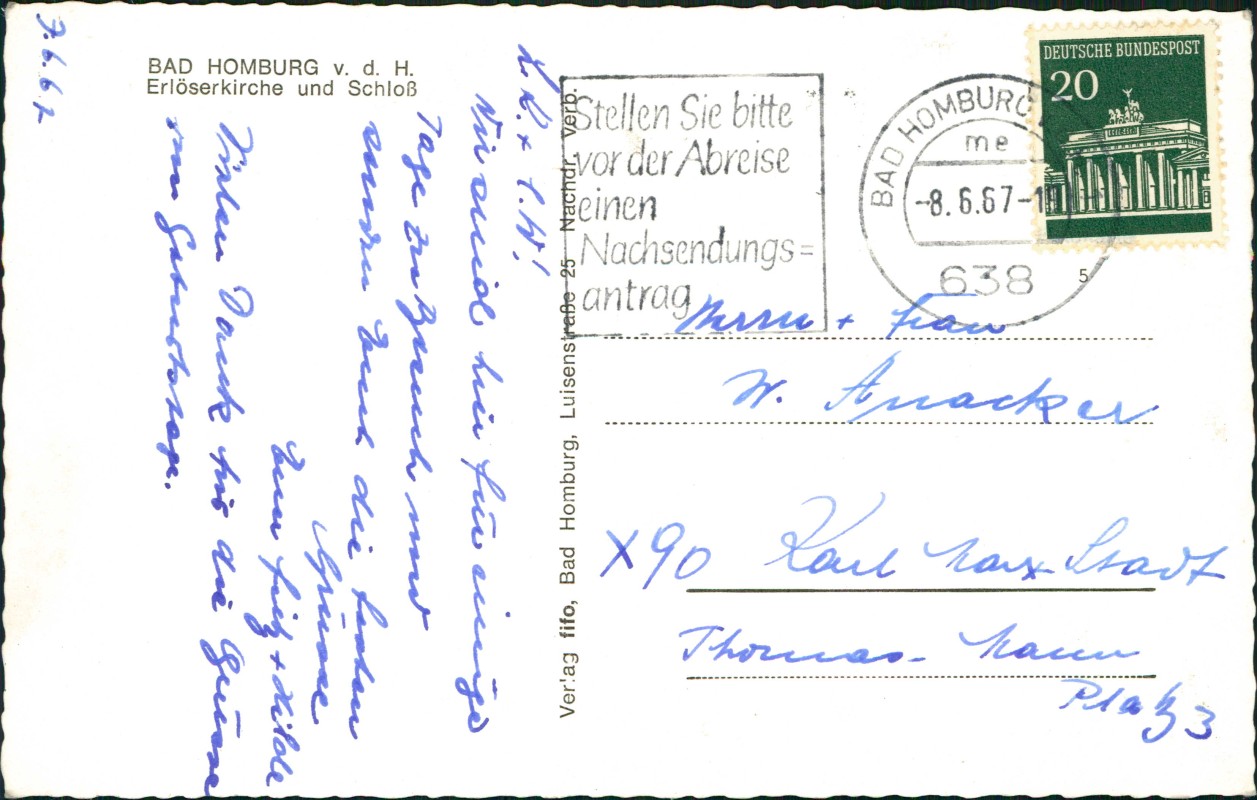 BAD HOMBURG v. d. H.
Erlöserkirche und Schloß
7.6.67
L.R. + L.W!
Wir sind hier für einige
Tage zu Besuch und
senden Euch die besten
Grüsse
Eure Fritz + Hilde
Vielen Dank für die Grüsse
zum Geburtstage.
Verlag fifo, Bad Homburg, Luisenstraße 25 Nachdr. verb.
Stellen Sie bitte
vor der Abreise
einen
Nachsendungs=
antrag
BAD HOMBURG
me
-8.6.67-1
638
DEUTSCHE BUNDESPOST
20
5
Herrn + Frau
W. Anacker
X90 Karl Marx-Stadt
Thomas-Mann
Platz 3